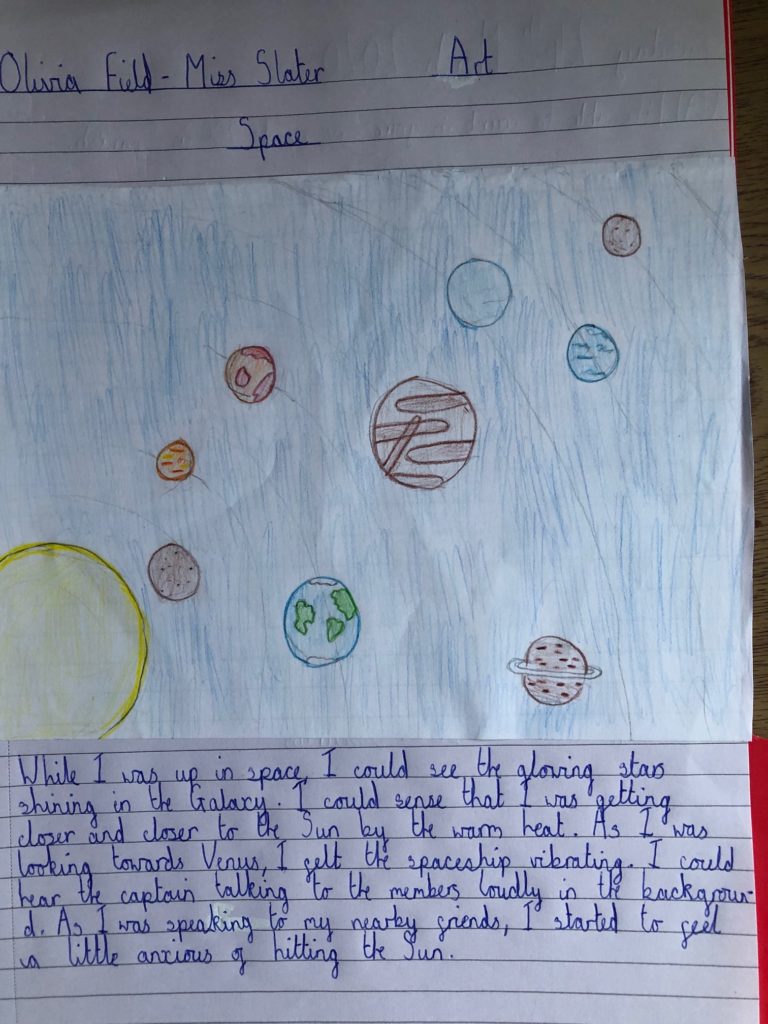 Olivia Field - Miss Slater Art
Space
While I was up in space, I could see the glowing stars
shining in the Galaxy. I could sense that I was getting
closer and closer to the Sun by the warm heat. As I was
looking towards Venus, I felt the spaceship vibrating. I could
hear the captain talking to the members loudly in the backgroun-
d. As I was speaking to my nearby friends, I started to feel
a little anxious of hitting the Sun.